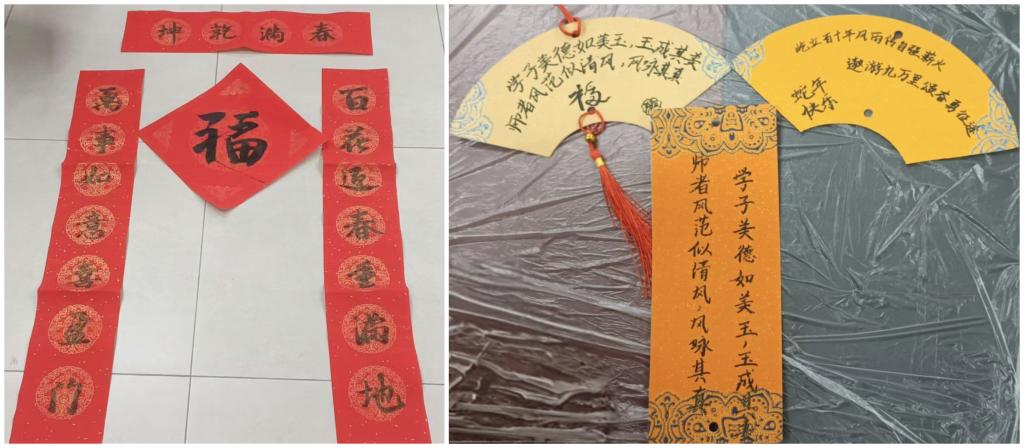 春满乾坤
百花迎春香满地
萬事如意喜盈門
福
学子美德如美玉，玉成其美
师者风范似清风，风咏其真
福
屹立百十年风雨传自强薪火
遨游九万里奋勇征途
蛇年
快乐
学子美德如美玉，玉成其美
师者风范似清风，风咏其真